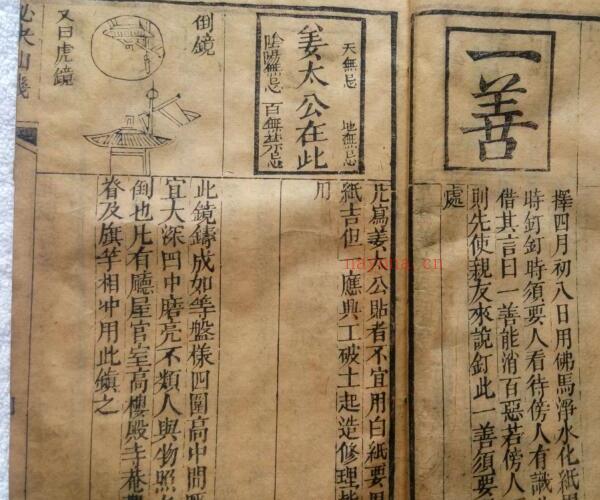 一善
擇四月初八日用佛馬淨水化紙
時釘釘時須要人看待傍人有識
借其言曰一善能消百惡若傍人
則先使親友來說釘此一善須要
處
天無忌 地無忌
姜太公在此
陰陽無忌 百無禁忌
凡寫姜太公貼者不宜用白紙要用
紙吉但一應興工破土起造修理皆
用
倒鏡
又曰虎鏡
此鏡鑄成如等盤樣四圍高中間
宜大深凹中磨亮不類人與物照
倒也凡有廳屋官室高樓殿寺庵
脊及旗竿相冲用此鎮之
nayona.cn